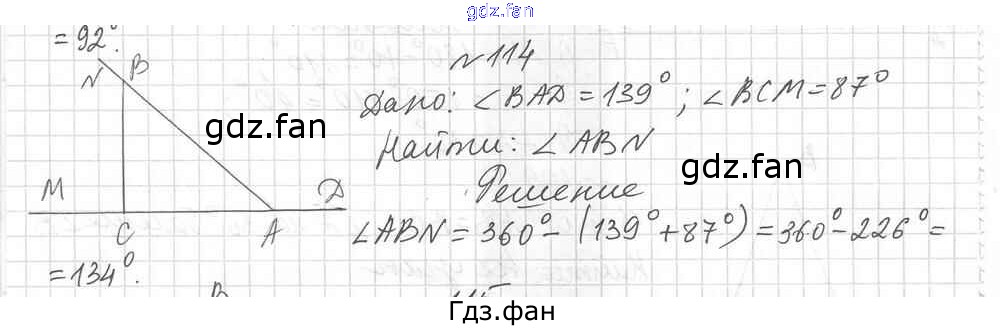 gdz.fan
= 92°.
№ 114
N B
Дано: ∠BAD = 139°; ∠BCM = 87°
gdz.fan
Найти: ∠ABN
gdz.fan
M D
Решение
C A
∠ABN = 360° - (139° + 87°) = 360° - 226° =
= 134°.
B
Гдз.фан